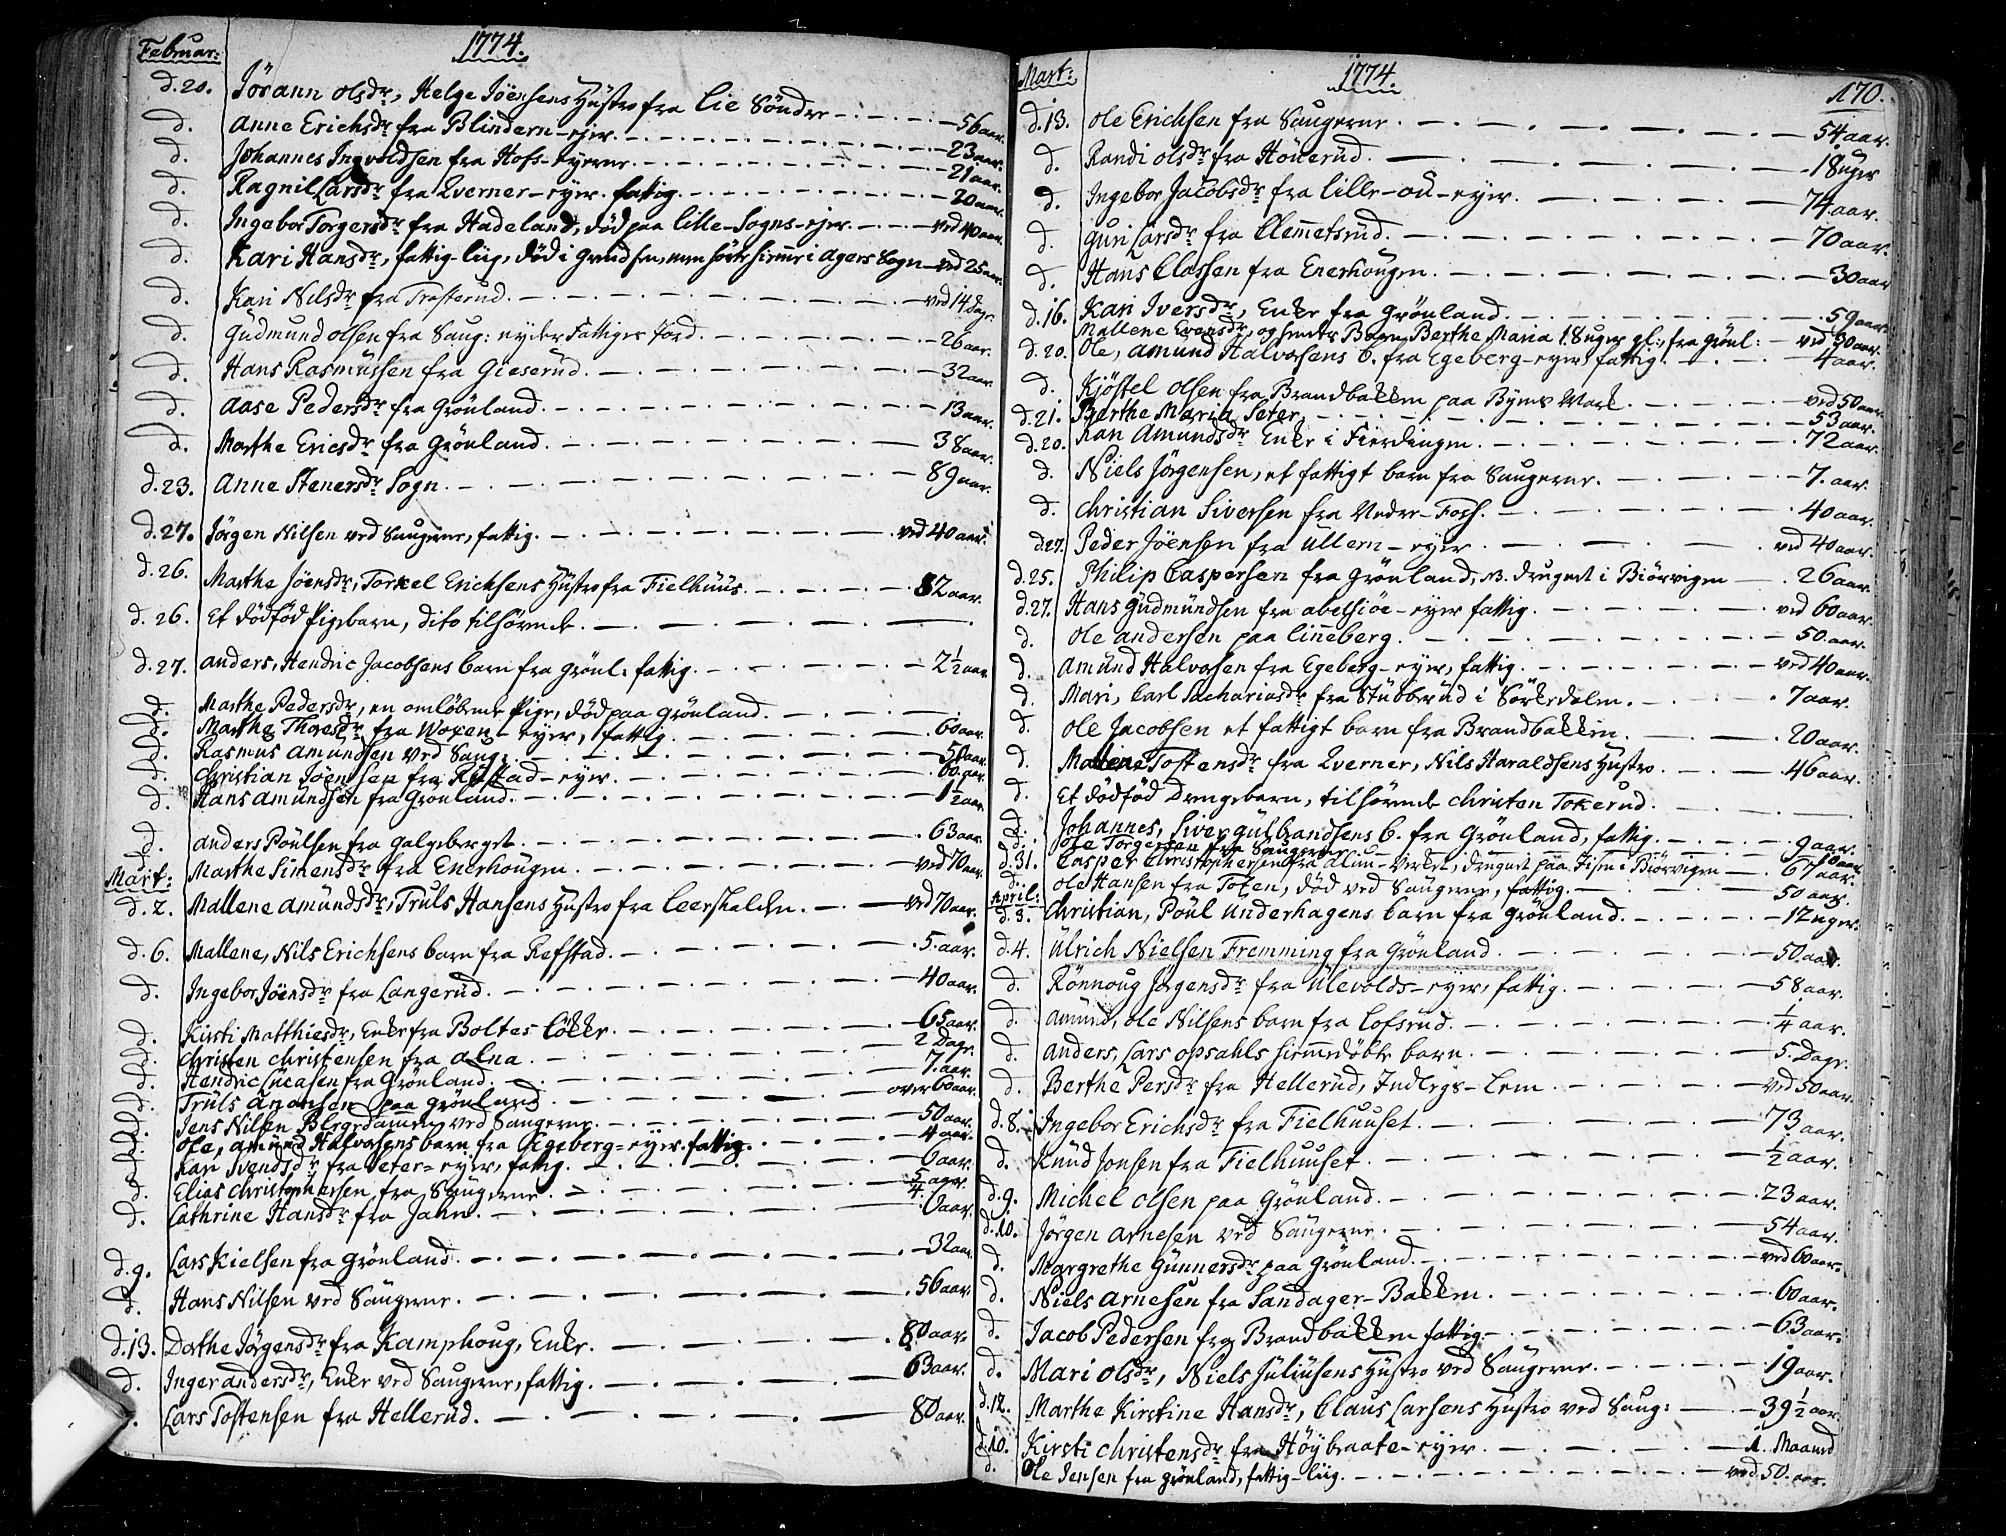 Februar: 1774.
d. 20. Jörann Olsdr, Helge Jöensens Hustro fra Lie Söndre 56 aar.
d. Anne Erichsdr fra Blindern-ejer. 23 aar.
d. Johannes Ingvoldsen fra Hofs-eyerne. 21 aar.
d. Ragnil Larsdr fra Qverner-eyer. fattig. 20 aar.
d. Ingebor Torgersdr fra Hadeland, död paa lille-Sogns-ejer. ved 40 aar.
d. Kari Hansdr, fattig-liig, död i Grendsen, men hörte hiemme i Agers Sogn ved 25 aar.
d. Kari Nilsdr fra Trosterud. ved 14 Dage.
d. Gudmund Olsen fra Saug: nyder Fattiges Jord 26 aar.
d. Hans Rasmussen fra Gieserud. 32 aar.
d. Aase Pedersdr fra Grönland. 13 aar.
d. Marthe Ericsdr fra Grönland. 38 aar.
d. 23. Anne Stenersdr Sogn. 89 aar.
d. 27. Jörgen Nilsen ved Saugerne, fattig. ved 40 aar.
d. 26. Marthe Jöensdr, Torkel Erichsens Hustro fra Fielhuus. 82 aar.
d. 26. Et dödföd Pigebarn, dito tilhörende.
d. 27. Anders, Hendric Jacobsens barn fra Grönl: fattig. 2 1/2 aar
d. Marthe Pedersdr, en omlöbende Pige, död paa Grönland.
d. Marthe Thoresdr fra Woxen-eyer, fattig 60 aar.
d. Rasmus Amundsen ved Saug: 50 aar.
d. Christian Jöensen fra Rustad-eyer. 60 aar.
d. Hans Amundsen fra Grönland. 1 1/2 aar
d. Anders Poulsen fra Galgeberget. 63 aar.
d. Marthe Simensdr fra Enerhougen. ved 70 aar.
Mart:
d. 2. Mallene Amundsdr, Truls Hansens Hustro fra Leerskalden. ved 70 aar.
d. 6. Mallene, Nils Erichsens barn fra Refstad. 5. aar.
d. Ingebor Jöensdr fra Langerud. 40 aar.
d. Kirsti Matthiesdr, Enke fra Boltes Lökke. 65 aar.
d. Christen Christensen fra Alna. 2 Dage.
d. Hendric Lucasen fra Grönland. 7. aar.
d. Truls paa Grönland over 60 aar.
d. Jens Nilsen ved Saugerne. 50 aar.
d. Ole, Amund Halvorsens barn fra Egeberg-eyer. fattig. 4 aar.
d. Kari Svendsdr fra Seter-eyer, fattig. aar.
d. Elias Christophersen fra Saugerne.
d. Cathrine Hansdr fra aar.
d. 9. Lars Kielsen fra Grönland. 32 aar.
d. Hans Nilsen ved Saugerne. 56 aar.
d. 13. Dorthe Jörgensdr fra Kamphoug, Enke. 80 aar.
d. Inger Andersdr, Enke ved Saugerne, fattig. 63 aar.
Lars Tostensen fra Hellerud. 80 aar.
Mart: 1774. 170.
d. 13. Ole Erichsen fra Saugerne. 54 aar.
d. Randi Olsdr fra Hönerud. 18 uger
d. Ingebor Jacobsdr fra lille-Ou-eyer. 74 aar.
d. Guri Larsdr fra Clemmetsrud. 70 aar.
d. Hans Classen fra Enerhougen. 30 aar
d. 16. Kari Iversdr, Enke fra Grönland. 59 aar.
Mallene Evensdr, og hendes Barn Berthe Maria 18 uger gl:, fra Grönl: ved 30 aar.
d. 20. Ole, Amund Halvorsens b. fra Egeberg-eyer, fattig. 4 aar.
d. Kjöstel Olsen fra Brandbakken paa Byens Mark. ved 50 aar.
d. 21. Berthe Maria Seter. 53 aar.
d. 20. Kari Amundsdr Enke i Fierdingen. 72 aar.
d. Niels Jörgensen, et fattigt barn fra Saugerne. 7. aar.
d. Christian Siversen fra Nedre-Foss. 40 aar.
d. 27. Peder Jöensen fra Ullern-eyer. ved 40 aar.
d. 25. Philip Caspersen fra Grönland, NB. druknet i Biörvigen 26 aar.
d. 27. Hans Gudmundsen fra Abelsiöe-eyer fattig. ved 60 aar.
d. Ole Andersen paa Linneberg. 50. aar.
d. Amund Halvorsen fra Egeberg-eyer, fattig. ved 40 aar.
d. Mari, Carl Sachariasdr fra Stubberud i Sörkedalen. 7 aar.
d. Ole Jacobsen et fattigt barn fra Brandbakken. 20 aar.
d. Malene Tostensdr fra Qverner, Nils Haraldsens Hustro. 46 aar.
d. Et dödföd Drengebarn, tilhörende Christen Tokerud.
d. Johannes, Siver Gulbrandsens b. fra Grönland, fattig. 9 aar.
d. Ole Torgersen fra Saugerne aar.
d. 31. Casper Christophersen fra Alun-Verket, druknet paa Iisen i Biörvigen 67 aar.
d. Ole Hansen fra Toten, död ved Saugerne, fattig. 50 aar.
April:
d. 3. Christian, Poul Underhagens barn fra Grönland. 12 uger.
d. 4. Ulrich Nielsen Fremming fra Grönland. 50. aar.
d. Rönnoug Jörgensdr fra Ulevolds-eyer, fattig. 58 aar.
d. Amund, Ole Nilsens barn fra Lofsrud. 1/4 aar.
d. Anders, Lars Opsahls hiemmedöbte barn. 5. Dage.
d. Berthe Persdr fra Hellerud, Indlegs-Lem ved 50 aar.
d. 8. Ingebor Erichsdr fra Fielhuuset. 73 aar.
d. Knud Jonsen fra Fielhuuset. 1/2 aar.
d. 9. Michel Olsen paa Grönland. 23 aar.
d. 10. Jörgen Arnesen ved Saugerne. 54 aar.
d. Margrethe Gunnersdr paa Grönland. ved 60 aar.
d. Niels Arnesen fra Sandager-Bakken. 60 aar.
d. Jacob Pedersen fra Brandbakken fattig 63 aar.
d. Mari Olsdr, Niels Juliusens Hustro ved Saugerne. 19 aar.
d. 12. Marthe Kirstine Hansdr, Claus Larsens Hustro ved Saug: 39 1/2 aar.
d. 10. Kirsti Christensdr fra Höybraate-eyer. 1. Maaned
d. Ole Jensen fra Grönland, fattig-liig. ved 50. aar.